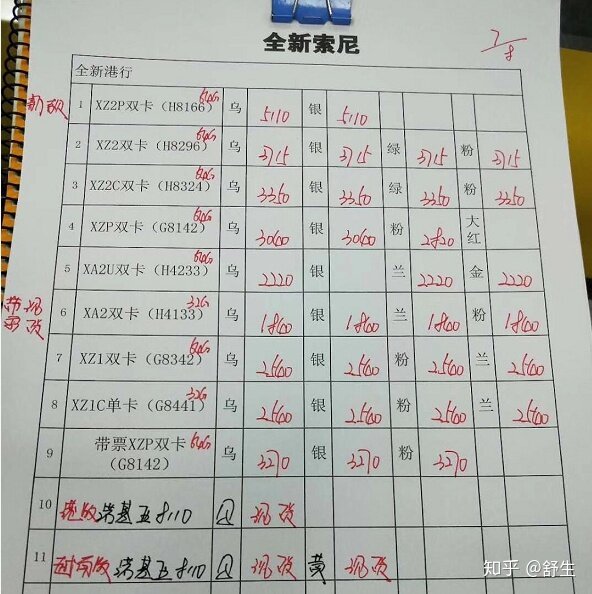 全新索尼
7/8
全新港行
1 XZ2P双卡（H8166）64G 乌 5110 银 5110
2 XZ2双卡（H8296）64G 乌 3715 银 3715 绿 3715 粉 3715
3 XZ2C双卡（H8324）64G 乌 3350 银 3350 绿 3350 粉 3350
4 XZP双卡（G8142）64G 乌 3040 银 3040 粉 2820 大红
5 XA2U双卡（H4233）64G 乌 2220 银 兰 2220 金 2220
6 XA2双卡（H4133）32G 乌 1840 银 1840 兰 1840 粉 1840
7 XZ1双卡（G8342）64G 乌 2540 银 2540 粉 2540 兰 2540
8 XZ1C单卡（G8441）32G 乌 2540 银 2540 粉 2540 兰 2540
9 带票XZP双卡（G8142）64G 乌 3270 银 3270 粉 3270
10 港版诺基亚8110
11 诺基亚8110 黄
知乎 @舒生